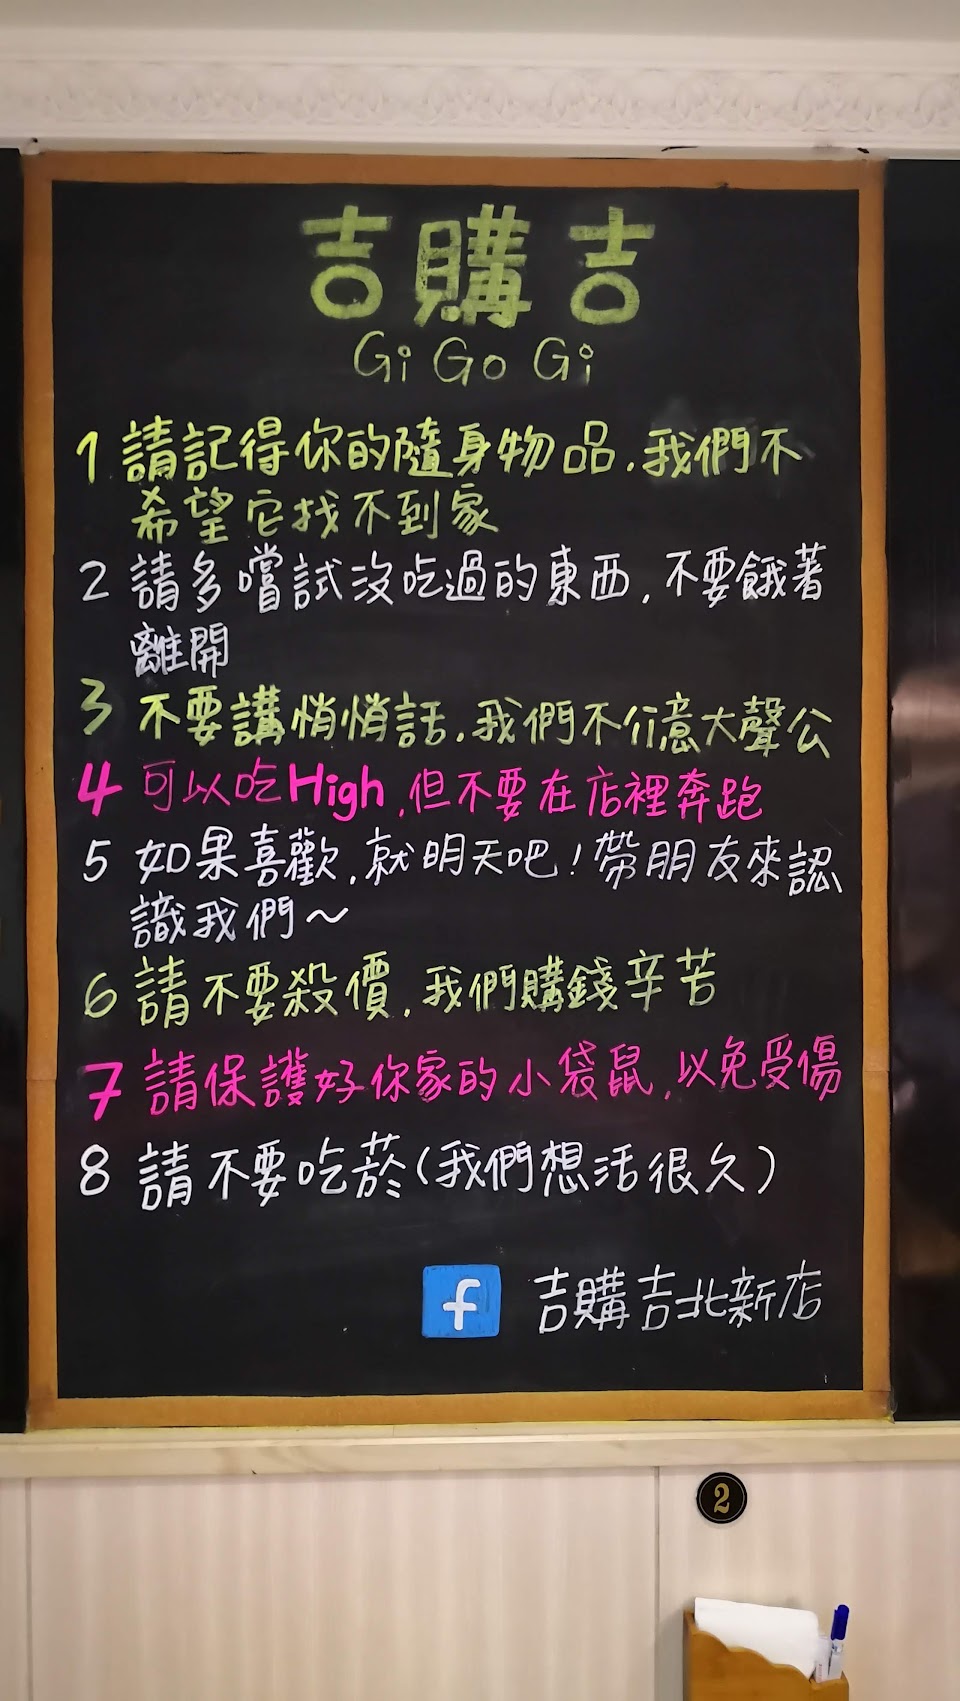 吉購吉
Gi Go Gi
1 請記得你的隨身物品，我們不
希望它找不到家
2 請多嚐試沒吃過的東西，不要餓著
離開
3 不要講悄悄話，我們不介意大聲公
4 可以吃High，但不要在店裡奔跑
5 如果喜歡，就明天吧！帶朋友來認
識我們～
6 請不要殺價，我們購錢辛苦
7 請保護好你家的小袋鼠，以免受傷
8 請不要吃菸（我們想活很久）
f 吉購吉北新店
2